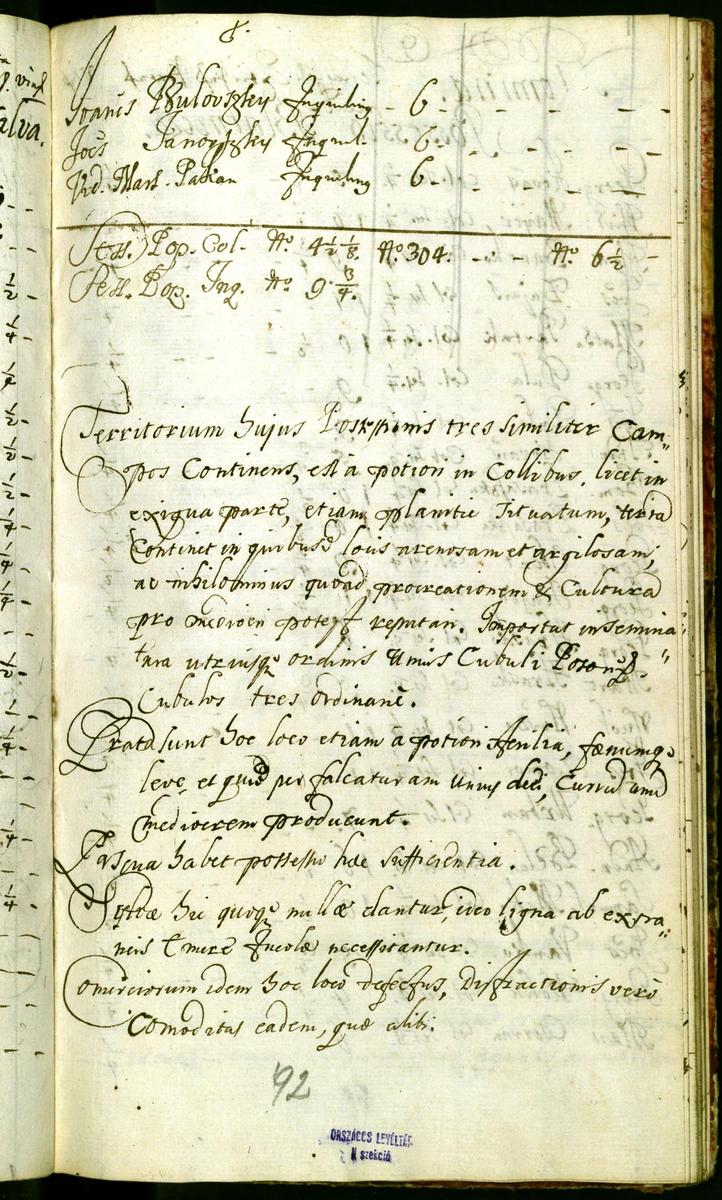 8.
Joanis Bulovszky Inquiling - 6 - - - -
Jois Janovszky Inquil. 6. - - - -
Vid. Mart. Pakan Inquiling 6 - - - -
Sess. Pop. Col. No. 4½ ⅛. No. 304. - - - No. 6½ -
Sess. Pop. Inq. No. 9 ¾.
Territorium hujus Possessionis tres similiter Cam„
pos Continens, est à potiori in Collibus, licet in
exigua parte, etiam planitie situatum, terra
Continet in quibusd locis arenosam et argilosam,
ac nihilominus quoad procreationem & Cultura
pro mediocri potest reputari. Importat insemina„
tura utriusq ordinis unius Cubuli Poson.
Cubulos tres ordinarie.
Prata sunt hoc loco etiam à potiori sterilia, faenumq
leve, et quid per falcaturam unius diei, Currum unum
mediocrem producunt.
Pascua habet possessio haec sufficientia.
Sylvae hic quoq nullae dantur, ideo ligna ab extra„
neis Emere Incolae necessitantur.
Comerciorum idem hoc loco defectus, Distractionis verò
Comoditas eadem, quae alibi.
92
ORSZÁGOS LEVÉLTÁR
II szekció
½
¼